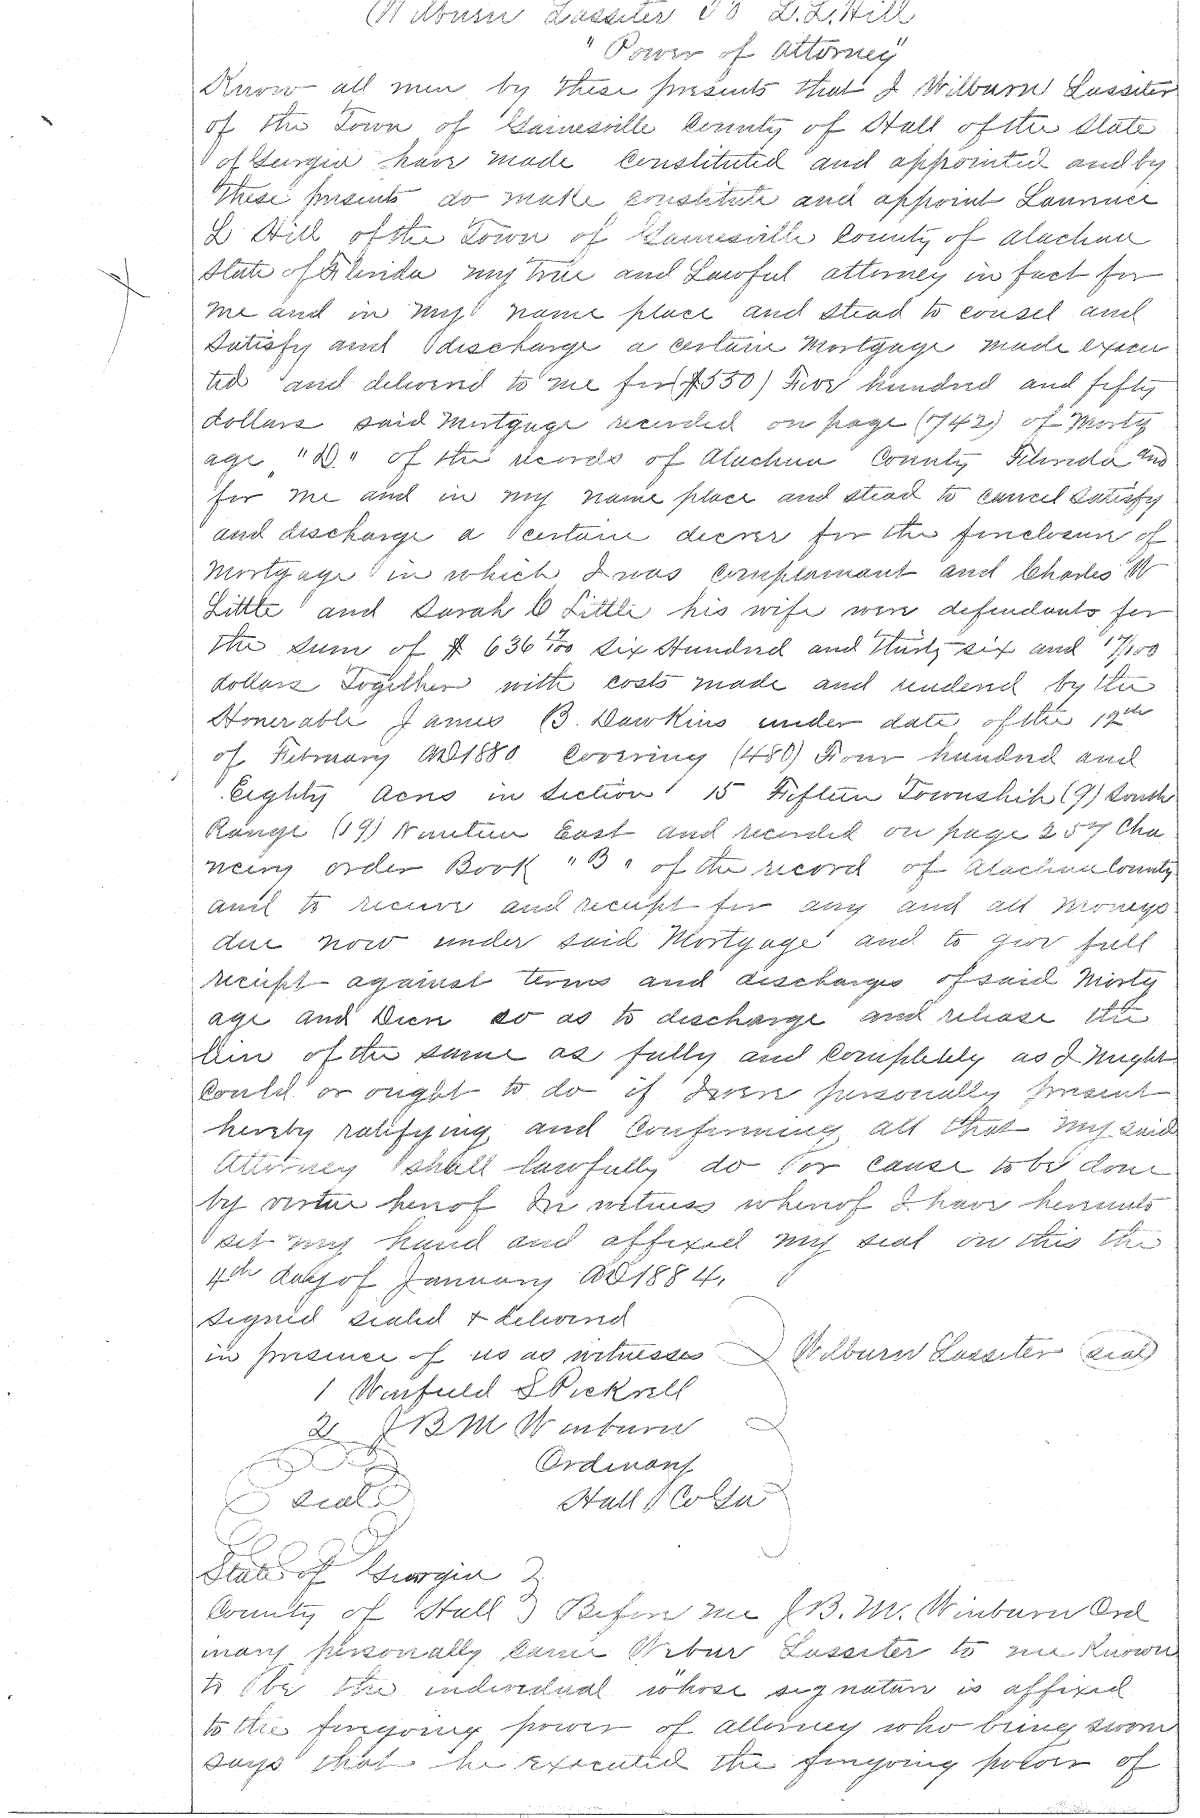 (Wilburn Lasseter to L. L. Hill
"Power of Attorney"
Know all men by these presents that I Wilburn Lasseter
of the Town of Gainesville County of Hall of the State
of Georgia have made constituted and appointed and by
these presents do make constitute and appoint Laurence
L Hill of the Town of Gainesville County of Alachua
State of Florida my true and Lawful attorney in fact for
me and in my name place and stead to cancel and
Satisfy and discharge a certain Mortgage made execu
ted and delivered to me for ($550) Five hundred and fifty
dollars said Mortgage recorded on page (742) of Mortg
age "D" of the records of Alachua County Florida and
for me and in my name place and stead to cancel satisfy
and discharge a certain decree for the foreclosure of
Mortgage in which I was complainant and Charles W
Little and Sarah C Little his wife were defendants for
the sum of $ 636 17/100 Six Hundred and thirty six and 17/100
dollars Together with costs made and rendered by the
Honerable James B. Dawkins under date of the 12th
of February AD 1880 Covering (480) Four hundred and
Eighty Acres in Section 15 Fifteen Township (9) South
Range (19) Nineteen East and recorded on page 257 Cha
ncery order Book "B" of the record of Alachua County
and to receive and receipt for any and all moneys
due now under said Mortgage and to give full
reciept against terms and discharges of said Mortg
age and Decre so as to discharge and release the
lein of the same as fully and completely as I might
Could or ought to do if I were personally present
hereby ratifying and Confirming all that my said
Attorney shall lawfully do or cause to be done
by virtue hereof In witness whereof I have hereunto
set my hand and affixed my seal on this the
4th day of January AD 1884.
signed sealed & delivered
in presence of us as witnesses Wilburn Lasseter (seal)
1 Winfield S Pickrell
2 J B M Winburn
Ordinary
seal Hall Co Ga
State of Georgia
County of Hall } Before me J. B. M. Winburn Ord
inary personally came Wilbur Lasseter to me Known
to be the individual whose signature is affixed
to the foregoing power of attorney who being sworn
says that he executed the foregoing power of